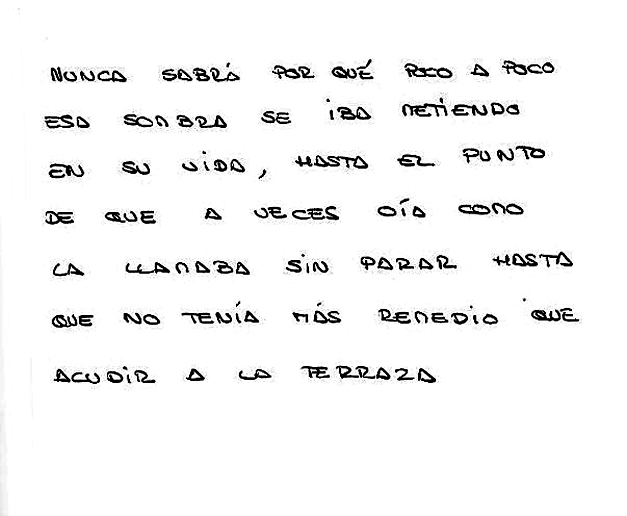 NUNCA SABRÁ POR QUÉ POCO A POCO
ESA SOMBRA SE IBA METIENDO
EN SU VIDA, HASTA EL PUNTO
DE QUE A VECES OÍA COMO
LA LLAMABA SIN PARAR HASTA
QUE NO TENÍA MÁS REMEDIO QUE
ACUDIR A LA TERRAZA